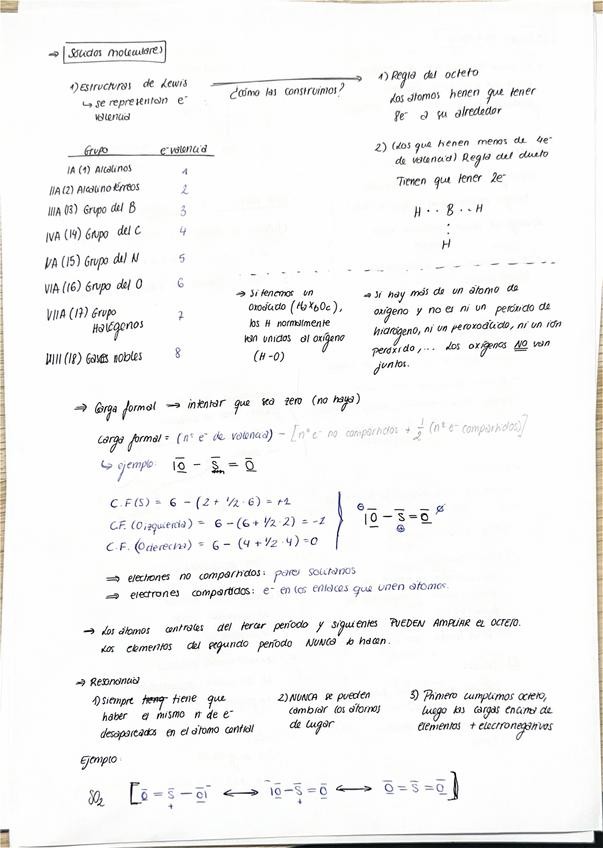 → Sólidos moleculares
1) Estructuras de Lewis
↳ se representan e⁻
valencia
¿Cómo las construimos?
1) Regla del octeto
Los átomos tienen que tener
8e⁻ a su alrededor
2) (Los que tienen menos de 4e⁻
de valencia) Regla del dueto
Tienen que tener 2e⁻
H · · B · · H
:
H
Grupo e⁻ valencia
IA (1) Alcalinos 1
IIA (2) Alcalinotérreos 2
IIIA (13) Grupo del B 3
IVA (14) Grupo del C 4
VA (15) Grupo del N 5
VIA (16) Grupo del O 6
VIIA (17) Grupo 7
Halógenos
VIII (18) Gases nobles 8
→ Si tenemos un
oxoácido (HaXbOc),
los H normalmente
van unidos al oxígeno
(H-O)
→ Si hay más de un átomo de
oxígeno y no es ni un peróxido de
hidrógeno, ni un peroxoácido, ni un ion
peróxido, ... Los oxígenos NO van
juntos.
⇒ Carga formal → intentar que sea zero (no haya)
Carga formal = (nº e⁻ de valencia) - [nº e⁻ no compartidos + 1/2 (nº e⁻ compartidos)]
↳ ejemplo: |O̲̅ - S̅ = O̲̅
C.F(S) = 6 - (2 + 1/2 · 6) = +1
C.F. (O izquierda) = 6 - (6 + 1/2 · 2) = -1
C.F. (O derecha) = 6 - (4 + 1/2 · 4) = 0
⊖ |O̲̅ - S̅ = O̲̅ ∅
⊕
⇒ electrones no compartidos: pares solitarios
⇒ electrones compartidos: e⁻ en los enlaces que unen átomos.
→ Los átomos centrales del tercer período y siguientes PUEDEN AMPLIAR EL OCTETO.
Los elementos del segundo período NUNCA lo hacen.
→ Resonancia
1) Siempre tiene que
haber el mismo nº de e⁻
desapareados en el átomo central
2) NUNCA se pueden
cambiar los átomos
de lugar
3) Primero cumplimos octeto,
luego las cargas encima de
elementos + electronegativos
Ejemplo:
SO₂ [O̲̅ = S̅ - O̲̅| ↔ |O̲̅ - S̅ = O̲̅ ↔ O̲̅ = S̅ = O̲̅]
+ +